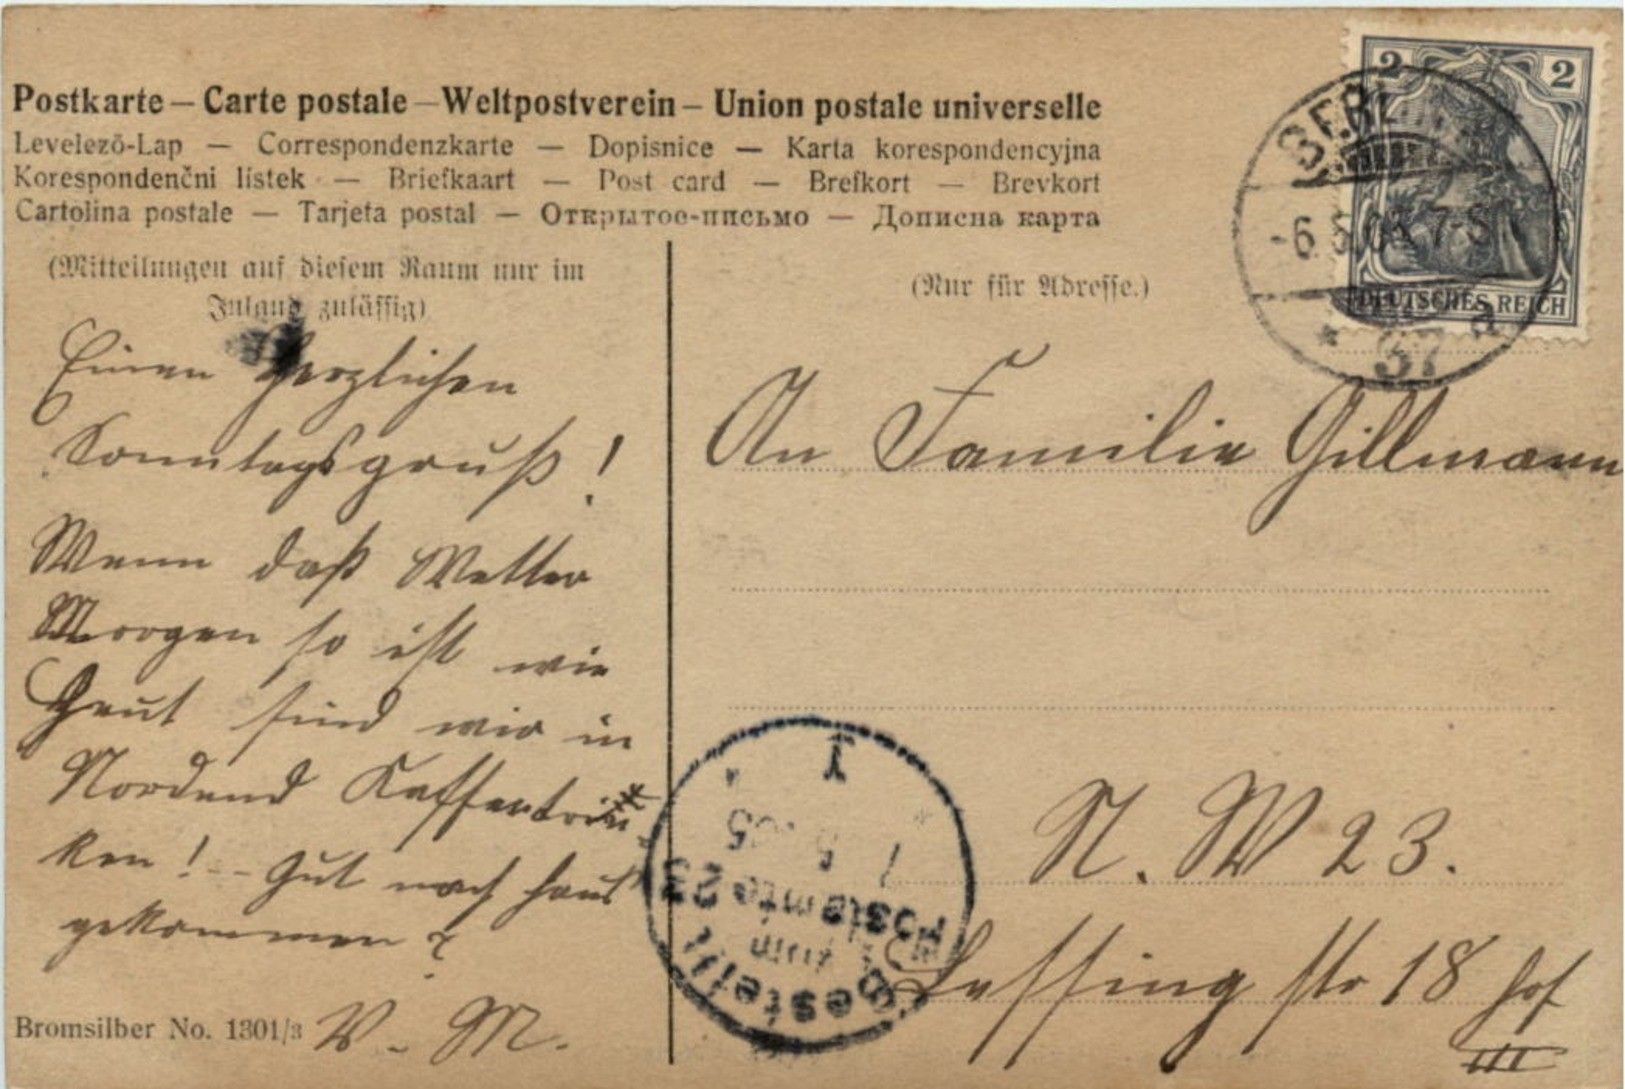 Postkarte – Carte postale – Weltpostverein – Union postale universelle
Levelezö-Lap — Correspondenzkarte — Dopisnice — Karta korespondencyjna
Korespondenčni lístek — Briefkaart — Post card — Brefkort — Brevkort
Cartolina postale — Tarjeta postal — Открытое-письмо — Дописна карта
(Mitteilungen auf diesem Raum nur im
Inland zulässig)
(Nur für Adresse.)
2 2
DEUTSCHES REICH
BERLIN
37 a
Einen herzlichen
Sonntagsgruß!
Wenn daß Wetter
Morgen so ist wie
Heut sind wir in
Nordend Kaffeetrin
ken! – Gut nach haus
gekommen?
W. M.
An Familie Gillmann
N. W 23.
Lessing str 18 hof
III
Bestellt
vom
Postamte 23
Bromsilber No. 1301/3